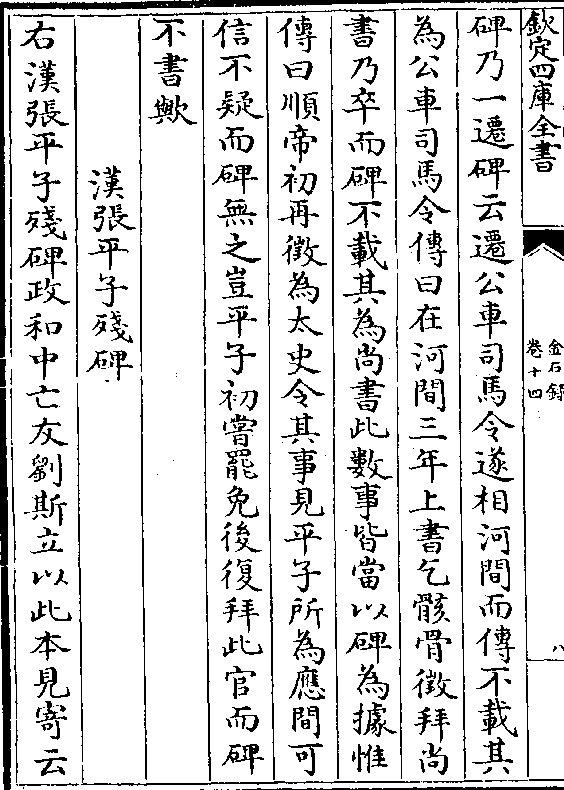 欽定四庫全書
金石錄
卷十四
八
碑乃一遷碑云遷公車司馬令遂相河間而傳不載其
為公車司馬令傳曰在河間三年上書乞骸骨徵拜尚
書乃卒而碑不載其為尚書此數事皆當以碑為據惟
傳曰順帝初再徵為太史令其事見平子所為應間可
信不疑而碑無之豈平子初嘗罷免後復拜此官而碑
不書歟
漢張平子殘碑
右漢張平子殘碑政和中亡友劉斯立以此本見寄云